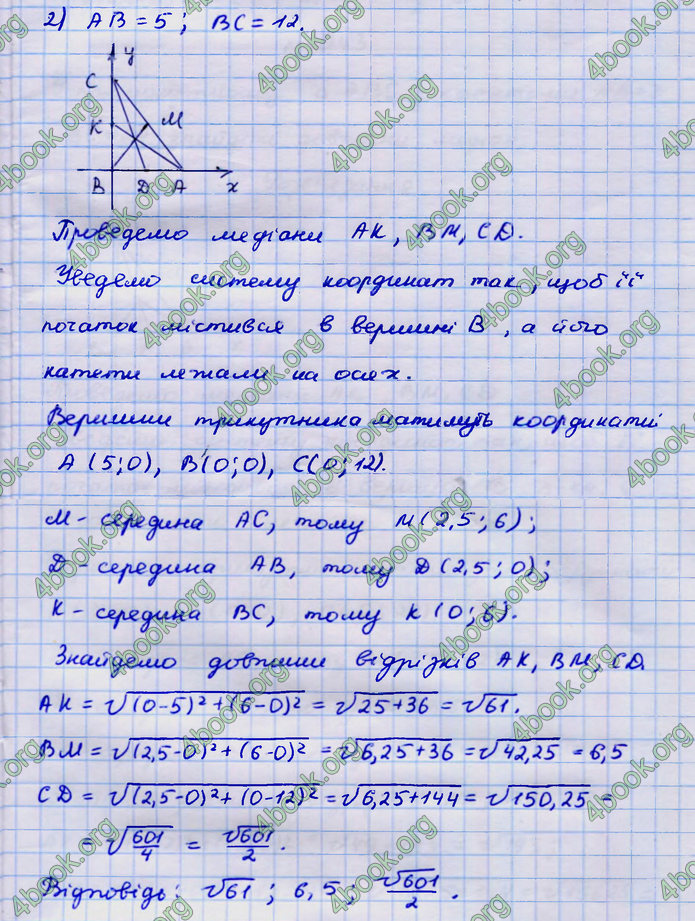 2) AB = 5; BC = 12.
y
C
K M
B D A x
Проведемо медіани AK, BM, CD.
Уведемо систему координат так, щоб її
початок містився в вершині B, а його
катети лежали на осях.
Вершини трикутника матимуть координати
A (5; 0), B (0; 0), C (0; 12).
M - середина AC, тому M (2,5; 6);
D - середина AB, тому D (2,5; 0);
K - середина BC, тому K (0; 6).
Знайдемо довжини відрізків AK, BM, CD.
AK = √((0-5)² + (6-0)²) = √(25+36) = √61.
BM = √((2,5-0)² + (6-0)²) = √(6,25+36) = √42,25 = 6,5
CD = √((2,5-0)² + (0-12)²) = √(6,25+144) = √150,25 =
= √(601/4) = √601/2.
Відповідь: √61; 6,5; √601/2.
4book.org